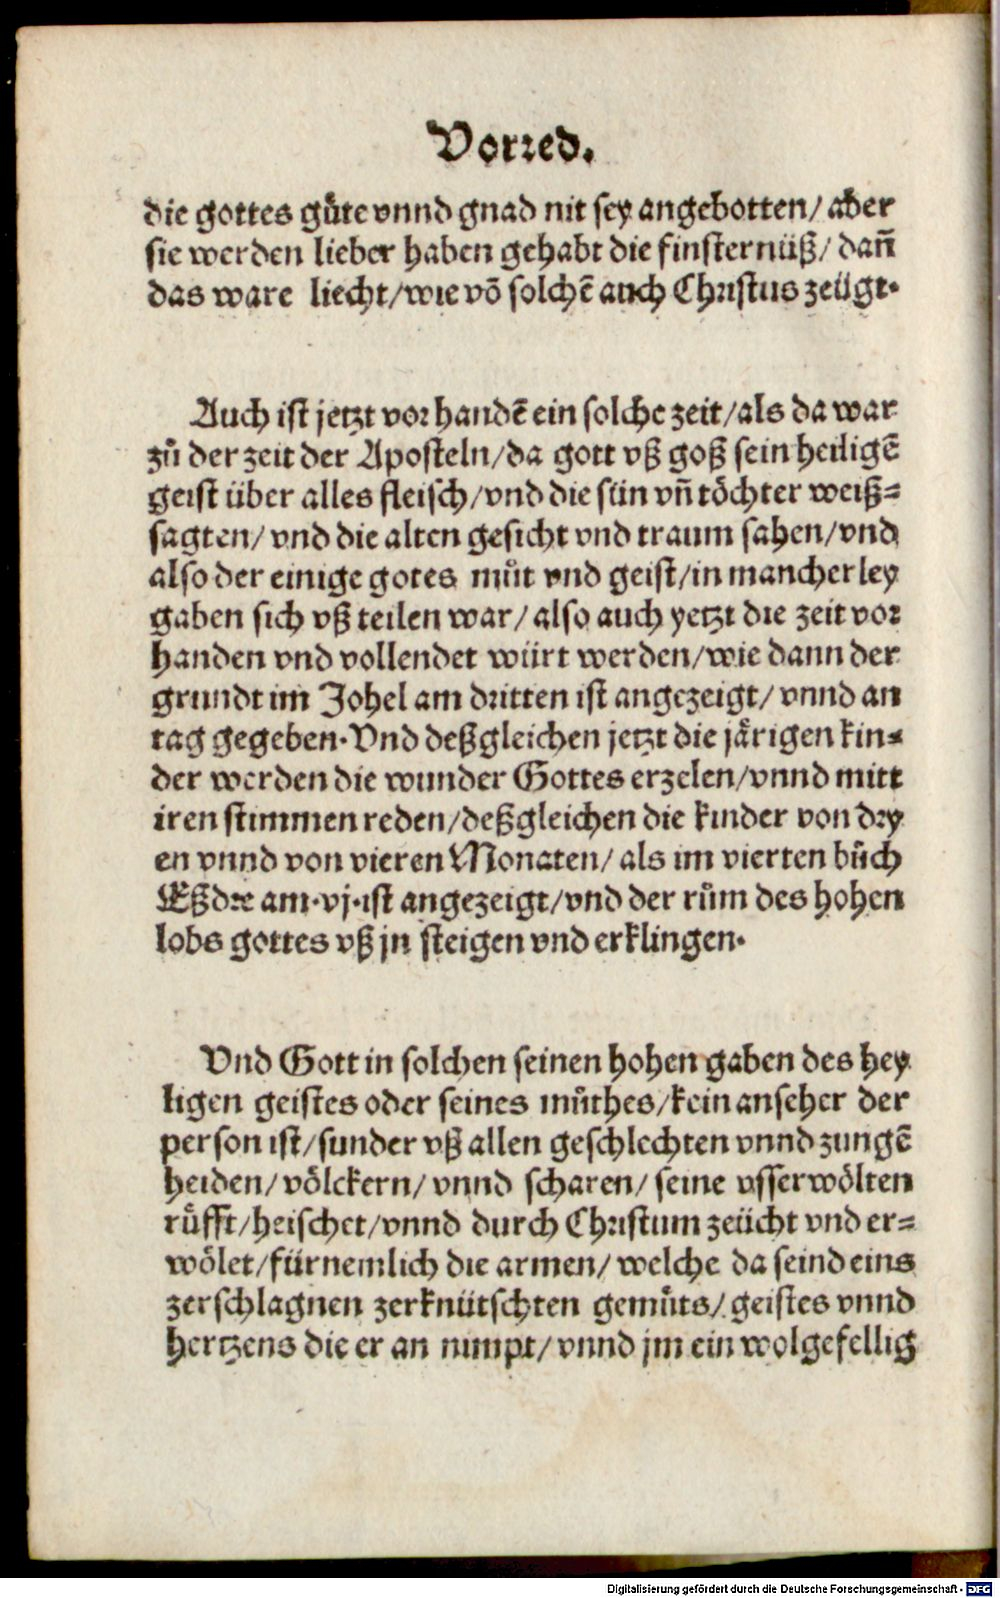 Vorred.
die gottes gůte vnnd gnad nit sey angebotten/ aber
sie werden lieber haben gehabt die finsternüß/ dañ
das ware liecht/wie võ solchẽ auch Christus zeügt.
Auch ist jetzt vorhandẽ ein solche zeit/als da war
zů der zeit der Aposteln/da gott vß goß sein heiligẽ
geist über alles fleisch/vnd die sün vñ töchter weiß=
sagten/ vnd die alten gesicht vnd traum sahen/vnd
also der einige gotes můt vnd geist/in mancherley
gaben sich vß teilen war/ also auch yetzt die zeit vor
handen vnd vollendet würt werden/wie dann der
grundt im Johel am dritten ist angezeigt/ vnnd an
tag gegeben. Vnd deßgleichen jetzt die järigen kin=
der werden die wunder Gottes erzelen/vnnd mitt
iren stimmen reden/deßgleichen die kinder von dry
en vnnd von vieren Monaten/ als im vierten bůch
Eßdre am.vj.ist angezeigt/vnd der rům des hohen
lobs gottes vß jn steigen vnd erklingen.
Vnd Gott in solchen seinen hohen gaben des hey
ligen geistes oder seines můthes/kein anseher der
person ist/sunder vß allen geschlechten vnnd zungẽ
heiden/ völckern/ vnnd scharen/ seine vsserwölten
rüfft/heischet/vnnd durch Christum zeücht vnd er=
wölet/fürnemlich die armen/ welche da seind eins
zerschlagnen zerknütschten gemůts/ geistes vnnd
hertzens die er an nimpt/ vnnd jm ein wolgefellig
Digitalisierung gefördert durch die Deutsche Forschungsgemeinschaft - DFG